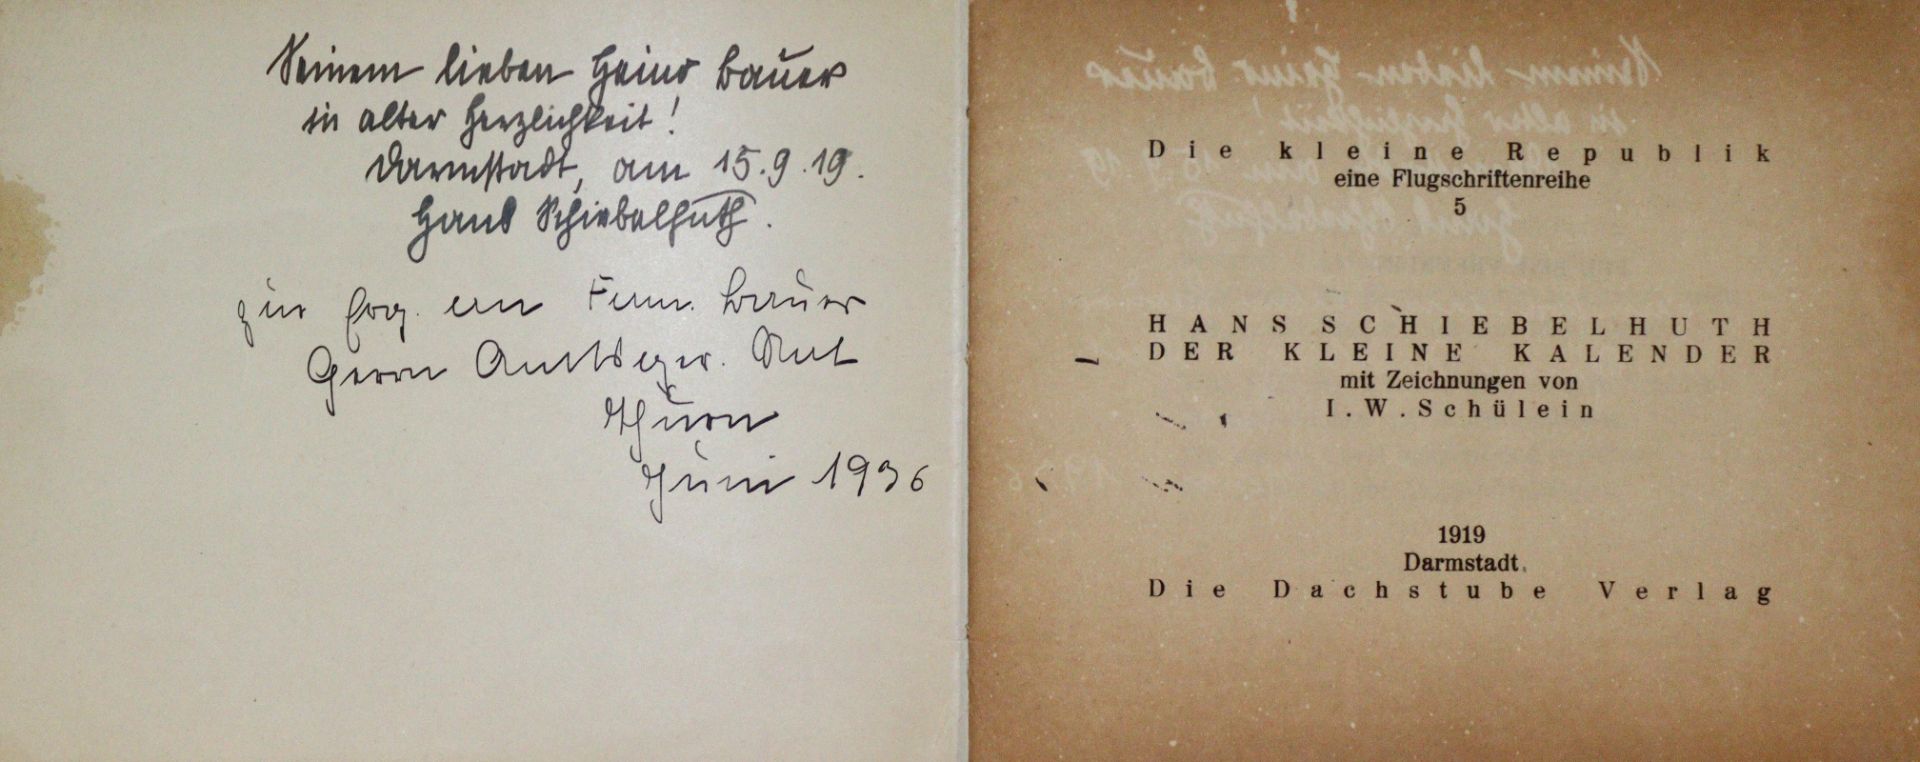 Seinem lieben Heino Bauer
in alter Herzlichkeit!
Darmstadt, am 15.9.19.
Hans Schiebelhuth.
zur an Bauer
Herrn Amtsger. Rat
Thurn
Juni 1936
Die kleine Republik
eine Flugschriftenreihe
5
HANS SCHIEBELHUTH
DER KLEINE KALENDER
mit Zeichnungen von
I.W.Schülein
1919
Darmstadt
Die Dachstube Verlag